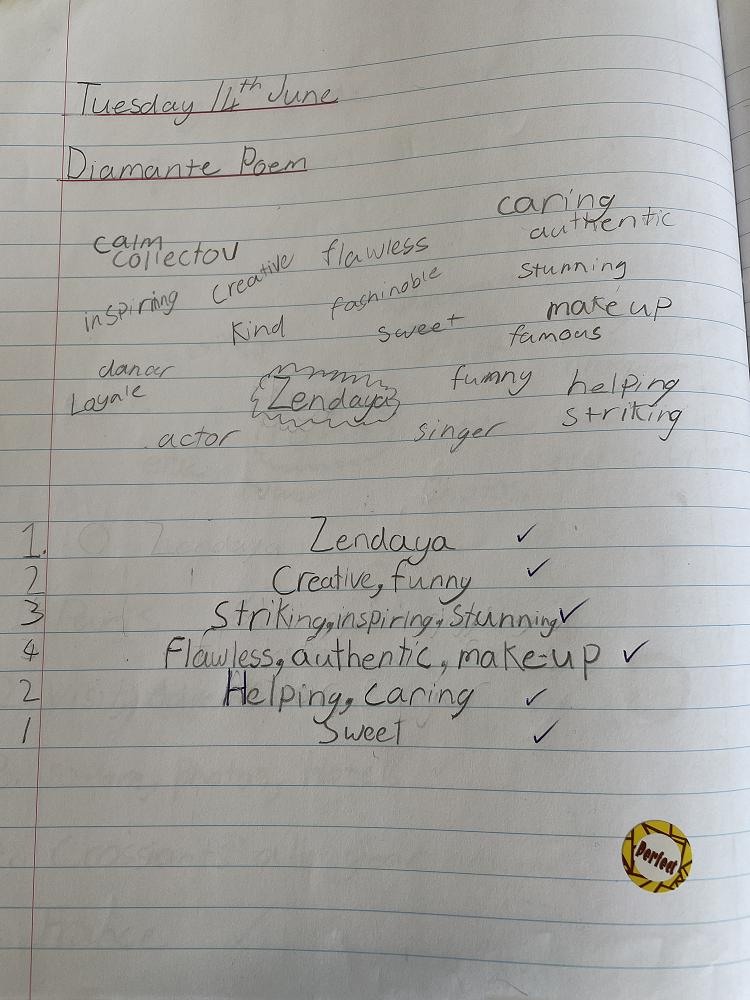 Tuesday 14th June
Diamante Poem
caring
calm authentic
collectov Creative flawless stunning
inspiring fashinoble make up
Kind sweet famous
dancer funny helping
Loyale Zendaya striking
actor singer
1. Zendaya ✓
2 Creative, funny ✓
3 Striking, inspiring, Stunning ✓
4 Flawless, authentic, make-up ✓
2 Helping, caring ✓
1 Sweet ✓
Perfect